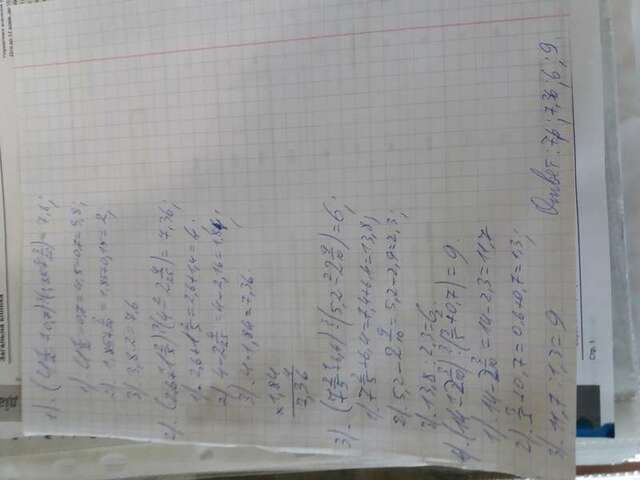 Загальна кнопка
1). (4 1/2 - 0,7) · (1,85 + 3/20) = 7,6;
1). 4 1/2 - 0,7 = 4,5 - 0,7 = 3,8;
2). 1,85 + 3/20 = 1,85 + 0,15 = 2;
3). 3,8 · 2 = 7,6
2). (2,6 + 1 2/5) · (4 - 2 4/25) = 7,36;
1). 2,6 + 1 2/5 = 2,6 + 1,4 = 4.
2). 4 - 2 4/25 = 4 - 2,16 = 1,84;
3). 4 · 1,84 = 7,36.
× 1,84
4
7,36
3). (7 2/5 + 6,4) : (5,2 - 2 9/10) = 6;
1). 7 2/5 + 6,4 = 7,4 + 6,4 = 13,8;
2). 5,2 - 2 9/10 = 5,2 - 2,9 = 2,3;
3). 13,8 : 2,3 = 6
4). (14 - 2 3/10) : (3/5 + 0,7) = 9.
1). 14 - 2 3/10 = 14 - 2,3 = 11,7
2). 3/5 + 0,7 = 0,6 + 0,7 = 1,3;
3). 11,7 : 1,3 = 9.
Ответ: 7,6; 7,36; 6; 9
Стр. 1